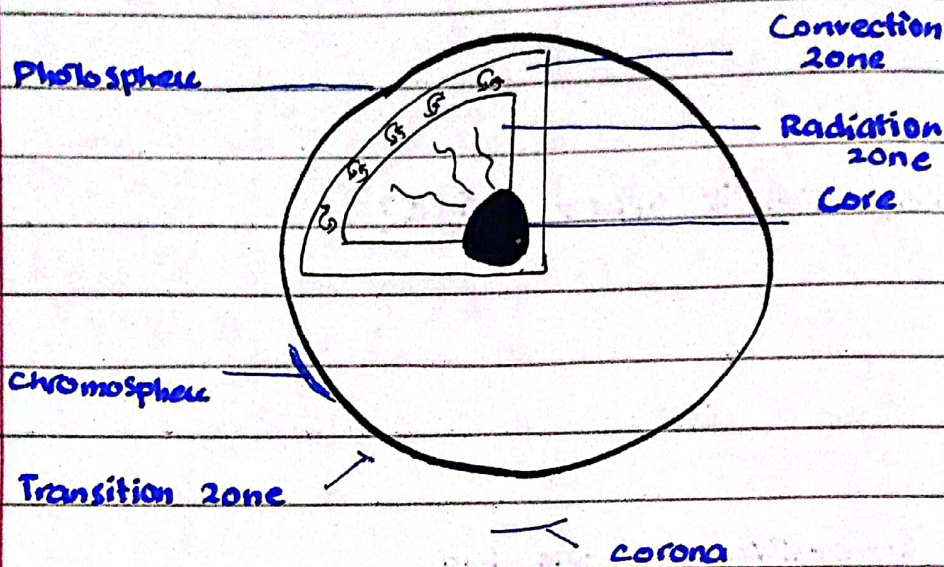 Convection
zone
Photosphere
Radiation
zone
Core
Chromosphere
Transition zone
corona